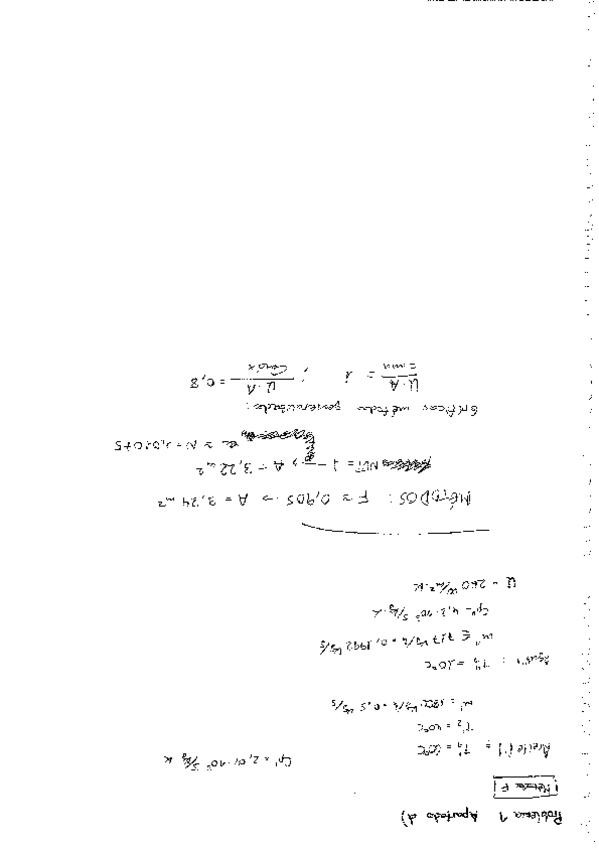 Problema 1 Apartado d)
Método F
Aceite (') = T'₁ = 60°C Cp' = 2,01·10³ J/kg·K
T'₂ = 40°C
m' = 1800 kg/h = 0,5 kg/s
Agua" : T"₁ = 20°C
m" = 717 kg/h = 0,1992 kg/s
Cp" = 4,2·10³ J/kg·K
U = 260 W/m²·K
MÉTODOS: F ≈ 0,905 → A = 3,24 m²
NUT = 1 → A = 3,22 m²
Gráficas método generalizado:
U·A/Cmin = 1 ; U·A/Cmáx = 0,8